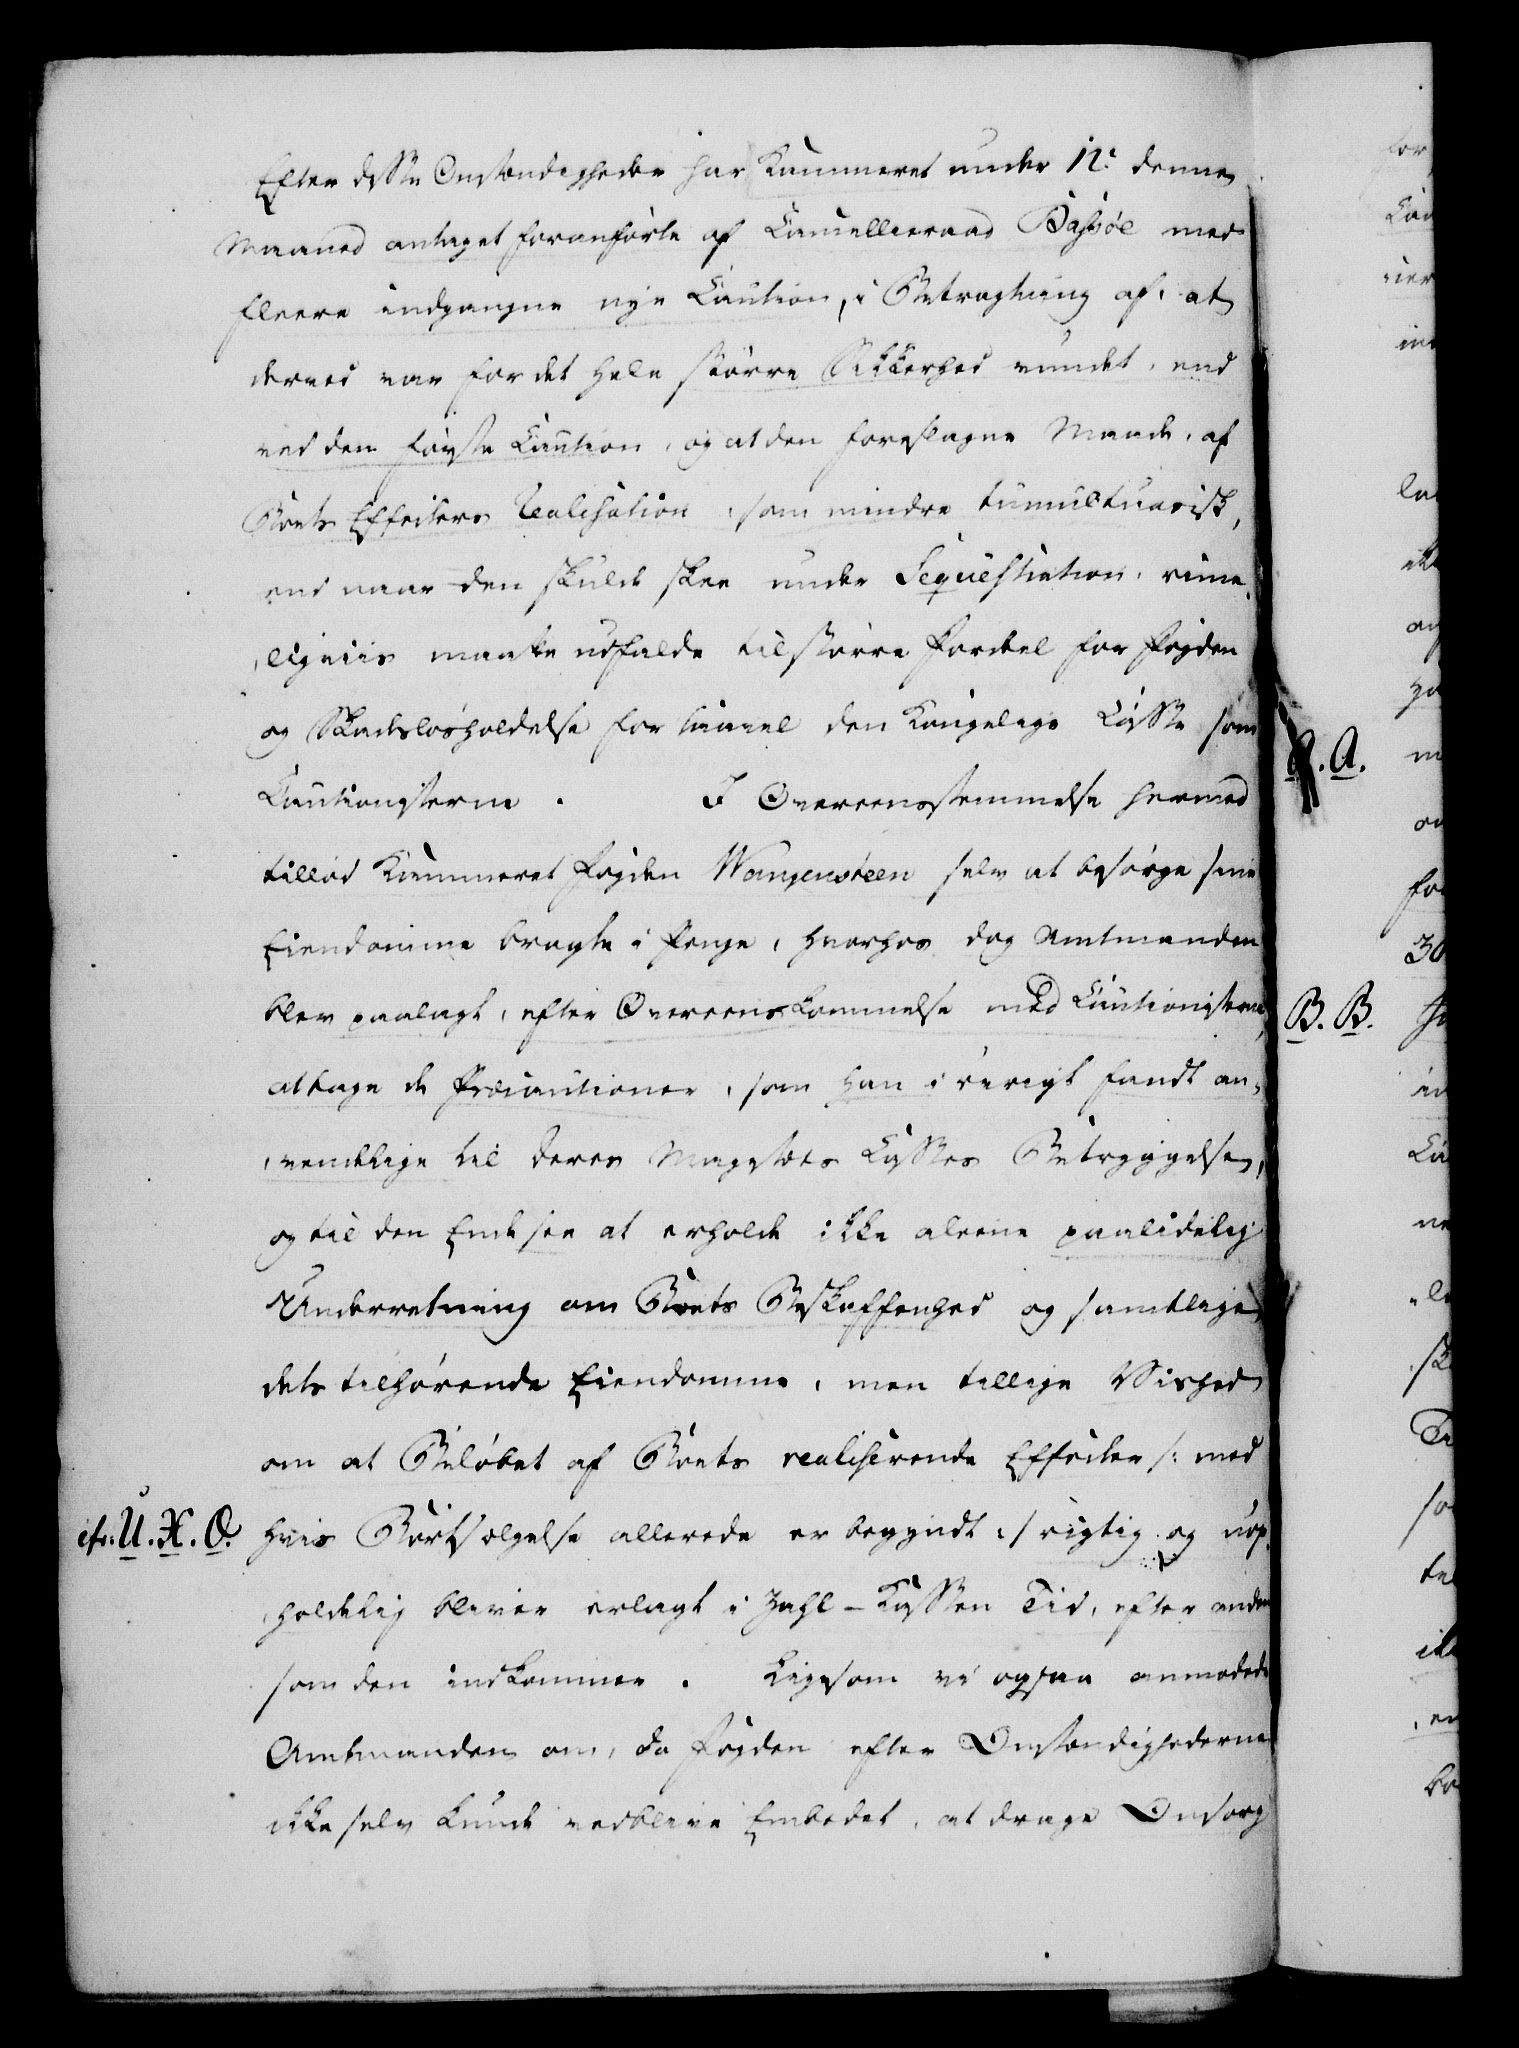 Efter disse Omstændigheder har Kammeret under 12te denne
Maaned antaget foranførte af Cancellieraad Basbøl med
fleere indgangne nye Caution, i Betragtning af, at
derved var for det hele større Sikkerhed vundet, end
ved den første Caution, og at den foreslagne Maade, af
Boets Effecters Realisation, som mindre tumultuarisk,
end naar den skulde skee under Seqvestration, rime,
,ligviis maatte udfalde til større Fordel for Fogden
og Skadesløsholdelse for saavel den Kongelige Casse som
Cautionisterne. I Overeensstemmelse hermed
tillod Kammeret Fogden Wangensteen selv at besørge sine
Eiendomme bragte i Penge, hvorhos dog Amtmanden
blev paalagt, efter Overeenskommelse med Cautionisterne,
at tage de Præcautioner, som han i øvrigt fandt an,
,vendelige til Deres Majestæts Casses Betryggelse,
og til den Ende see at erholde ikke aleene paalidelig
Underretning om Boets Beskaffenhed og samtlige
dets tilhørende Eiendomme, men tillige Vished
om at Beløbet af Boets realiserende Effecter /: med
cfr. U. X. O.
hvis Bortsælgelse allerede er begyndt :/ rigtig og uop,
,holdelig bliver erlagt i Zahl-Kassen Tid, efter anden
som den indkommer. Ligesom vi ogsaa anmodede
Amtmanden om, da Fogden efter Omstændighederne
ikke selv kunde vedblive Embedet, at drage Omsorg
A. A.
B. B.